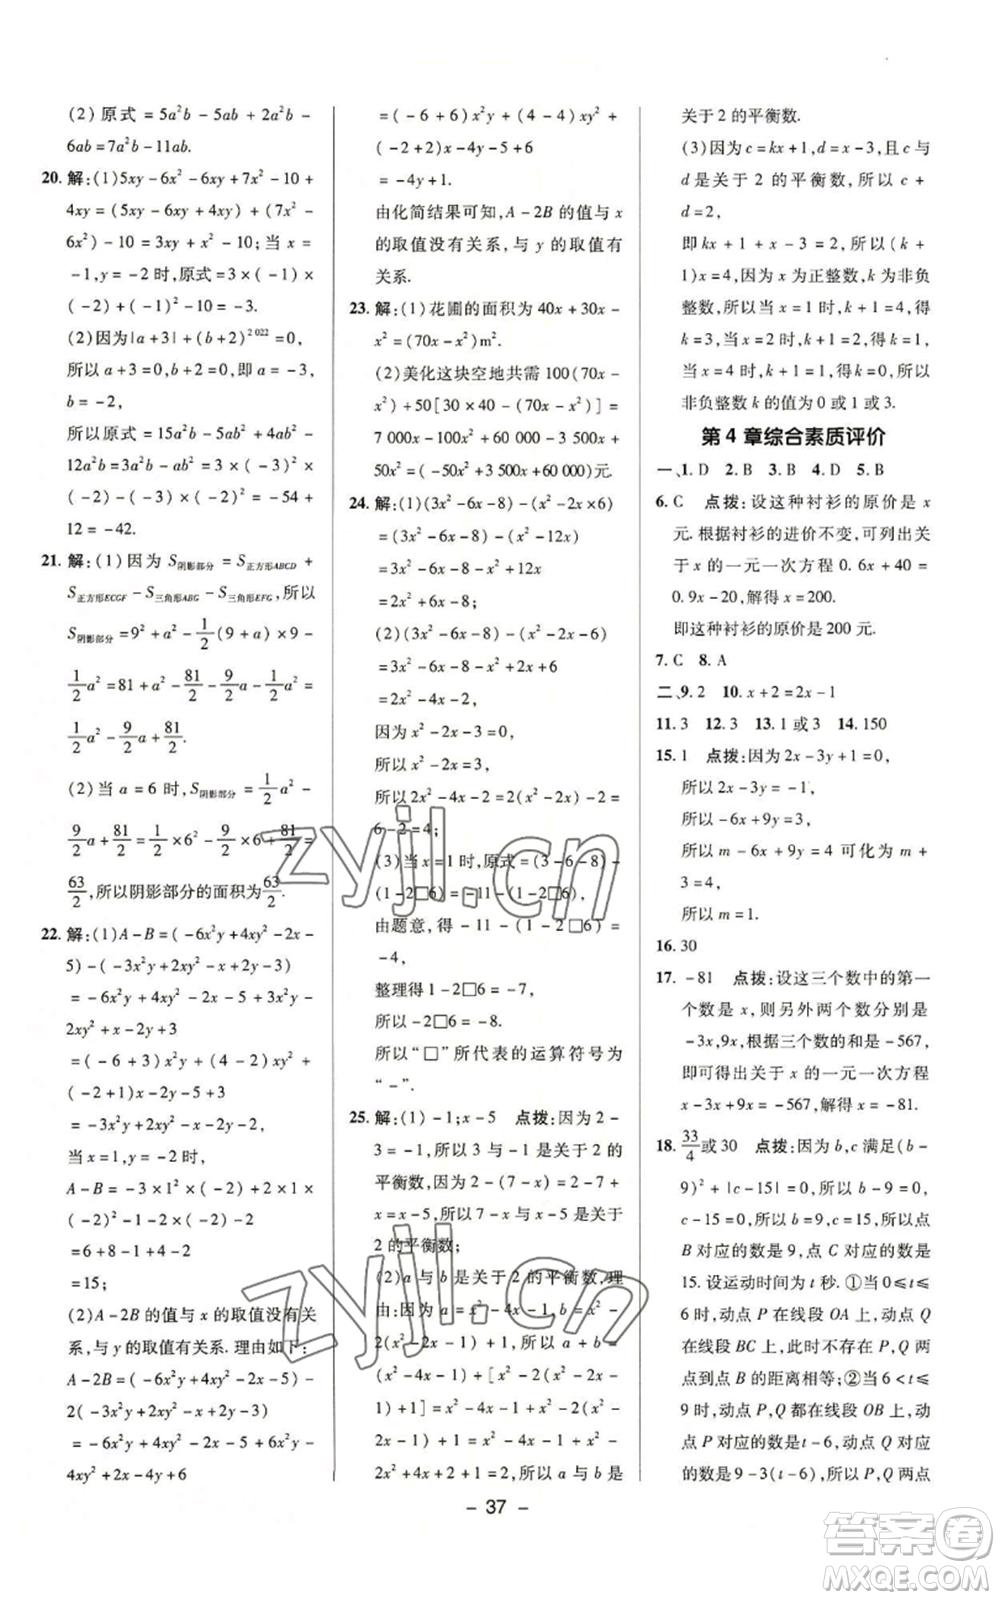 (2)原式=5a²b-5ab+2a²b-
6ab=7a²b-11ab.
20. 解:(1)5xy-6x²-6xy+7x²-10+
4xy=(5xy-6xy+4xy)+(7x²-
6x²)-10=3xy+x²-10;当x=
-1,y=-2时,原式=3×(-1)×
(-2)+(-1)²-10=-3.
(2)因为|a+3|+(b+2)²⁰²²=0,
所以a+3=0,b+2=0,即a=-3,
b=-2,
所以原式=7×(-3)²×(-2)-
12=-42.
21. 解:(1)因为S阴影部分=S正方形ABCD+
S正方形ECGF-S三角形ABG-S三角形EFG,所以
S阴影部分=9²+a²-1/2(9+a)×9-
1/2a²=81+a²-81/2-9/2a-1/2a²=
1/2a²-9/2a+81/2.
(2)当a=6时,S阴影部分=1/2a²-
9/2a+81/2=1/2×6²-9/2×6+81/2=
63/2,所以阴影部分的面积为63/2.
22. 解:(1)A-B=(-6x²y+4xy²-2x-
5)-(-3x²y+2xy²-x+2y-3)
=-6x²y+4xy²-2x-5+3x²y-
2xy²+x-2y+3
=(-6+3)x²y+(4-2)xy²+
(-2+1)x-2y-5+3
=-3x²y+2xy²-x-2y-2,
当x=1,y=-2时,
A-B=-3×1²×(-2)+2×1×
(-2)²-1-2×(-2)-2
=6+8-1+4-2
=15;
(2)A-2B的值与x的取值没有关
系,与y的取值有关系.理由如下:
A-2B=(-6x²y+4xy²-2x-5)-
2(-3x²y+2xy²-x+2y-3)
=-6x²y+4xy²-2x-5+6x²y-
4xy²+2x-4y+6
=(-6+6)x²y+(4-4)xy²+
(-2+2)x-4y-5+6
=-4y+1.
由化简结果可知,A-2B的值与x
的取值没有关系,与y的取值有
关系.
23. 解:(1)花圃的面积为40x+30x-
x²=(70x-x²)m².
(2)美化这块空地共需100(70x-
x²)+50[30×40-(70x-x²)]=
7 000x-100x²+60 000-3 500x+
50x²=(-50x²+3 500x+60 000)元.
24. 解:(1)(3x²-6x-8)-(x²-2x×6)
=(3x²-6x-8)-(x²-12x)
=3x²-6x-8-x²+12x
=2x²+6x-8;
(2)(3x²-6x-8)-(x²-2x-6)
=3x²-6x-8-x²+2x+6
=2x²-4x-2,
因为x²-2x-3=0,
所以x²-2x=3,
所以2x²-4x-2=2(x²-2x)-2=
6-2=4;
(3)当x=1时,原式=(3-6-8)-
(1-2□6)=-11-(1-2□6),
由题意,得-11-(1-2□6)=
-4,
整理得1-2□6=-7,
所以-2□6=-8.
所以“□”所代表的运算符号为
“-”.
25. 解:(1)-1;x-5 点拨:因为2-
3=-1,所以3与-1是关于2的
平衡数,因为2-(7-x)=2-7+
x=x-5,所以7-x与x-5是关于
2的平衡数;
(2)a与b是关于2的平衡数,理
由:因为a=x²-4x-1,b=x²-
2(x²-2x-1)+1,所以a+b=
(x²-4x-1)+[x²-2(x²-2x-
1)+1]=x²-4x-1+x²-2x²+
4x+2+1=2,所以a与b是
关于2的平衡数.
(3)因为c=kx+1,d=x-3,且c与
d是关于2的平衡数,所以c+
d=2,
即kx+1+x-3=2,所以(k+
1)x=4,因为x为正整数,k为非负
整数,所以当x=1时,k+1=4,得
k=3,当x=2时,k+1=2,得k=1,
当x=4时,k+1=1,得k=0,所以
非负整数k的值为0或1或3.
第4章综合素质评价
一、1. D 2. B 3. B 4. D 5. B
6. C 点拨:设这种衬衫的原价是x
元.根据衬衫的进价不变,可列出关
于x的一元一次方程0.6x+40=
0.9x-20,解得x=200.
即这种衬衫的原价是200元.
7. C 8. A
二、9. 2 10. x+2=2x-1
11. 3 12. 3 13. 1或3 14. 150
15. 1 点拨:因为2x-3y+1=0,
所以2x-3y=-1,
所以-6x+9y=3,
所以m-6x+9y=4可化为m+
3=4,
所以m=1.
16. 30
17. -81 点拨:设这三个数中的第一
个数是x,则另外两个数分别是
-3x,9x,根据三个数的和是-567,
即可得出关于x的一元一次方程
x-3x+9x=-567,解得x=-81.
18. 33/4或30 点拨:因为b,c满足(b-
9)²+|c-15|=0,所以b-9=0,
c-15=0,所以b=9,c=15,所以点
B对应的数是9,点C对应的数是
15.设运动时间为t秒.①当0≤t≤
6时,动点P在线段OA上,动点Q
在线段BC上,不存在P,Q两
点的距离相等;②当6<t≤
9时,动点P,Q都在线段OB上,动
点P对应的数是t-6,动点Q对应
的数是9-3(t-6),所以P,Q两点
- 37 -
zyjl.cn
zyjl.cn
答案卷
MXQE.COM